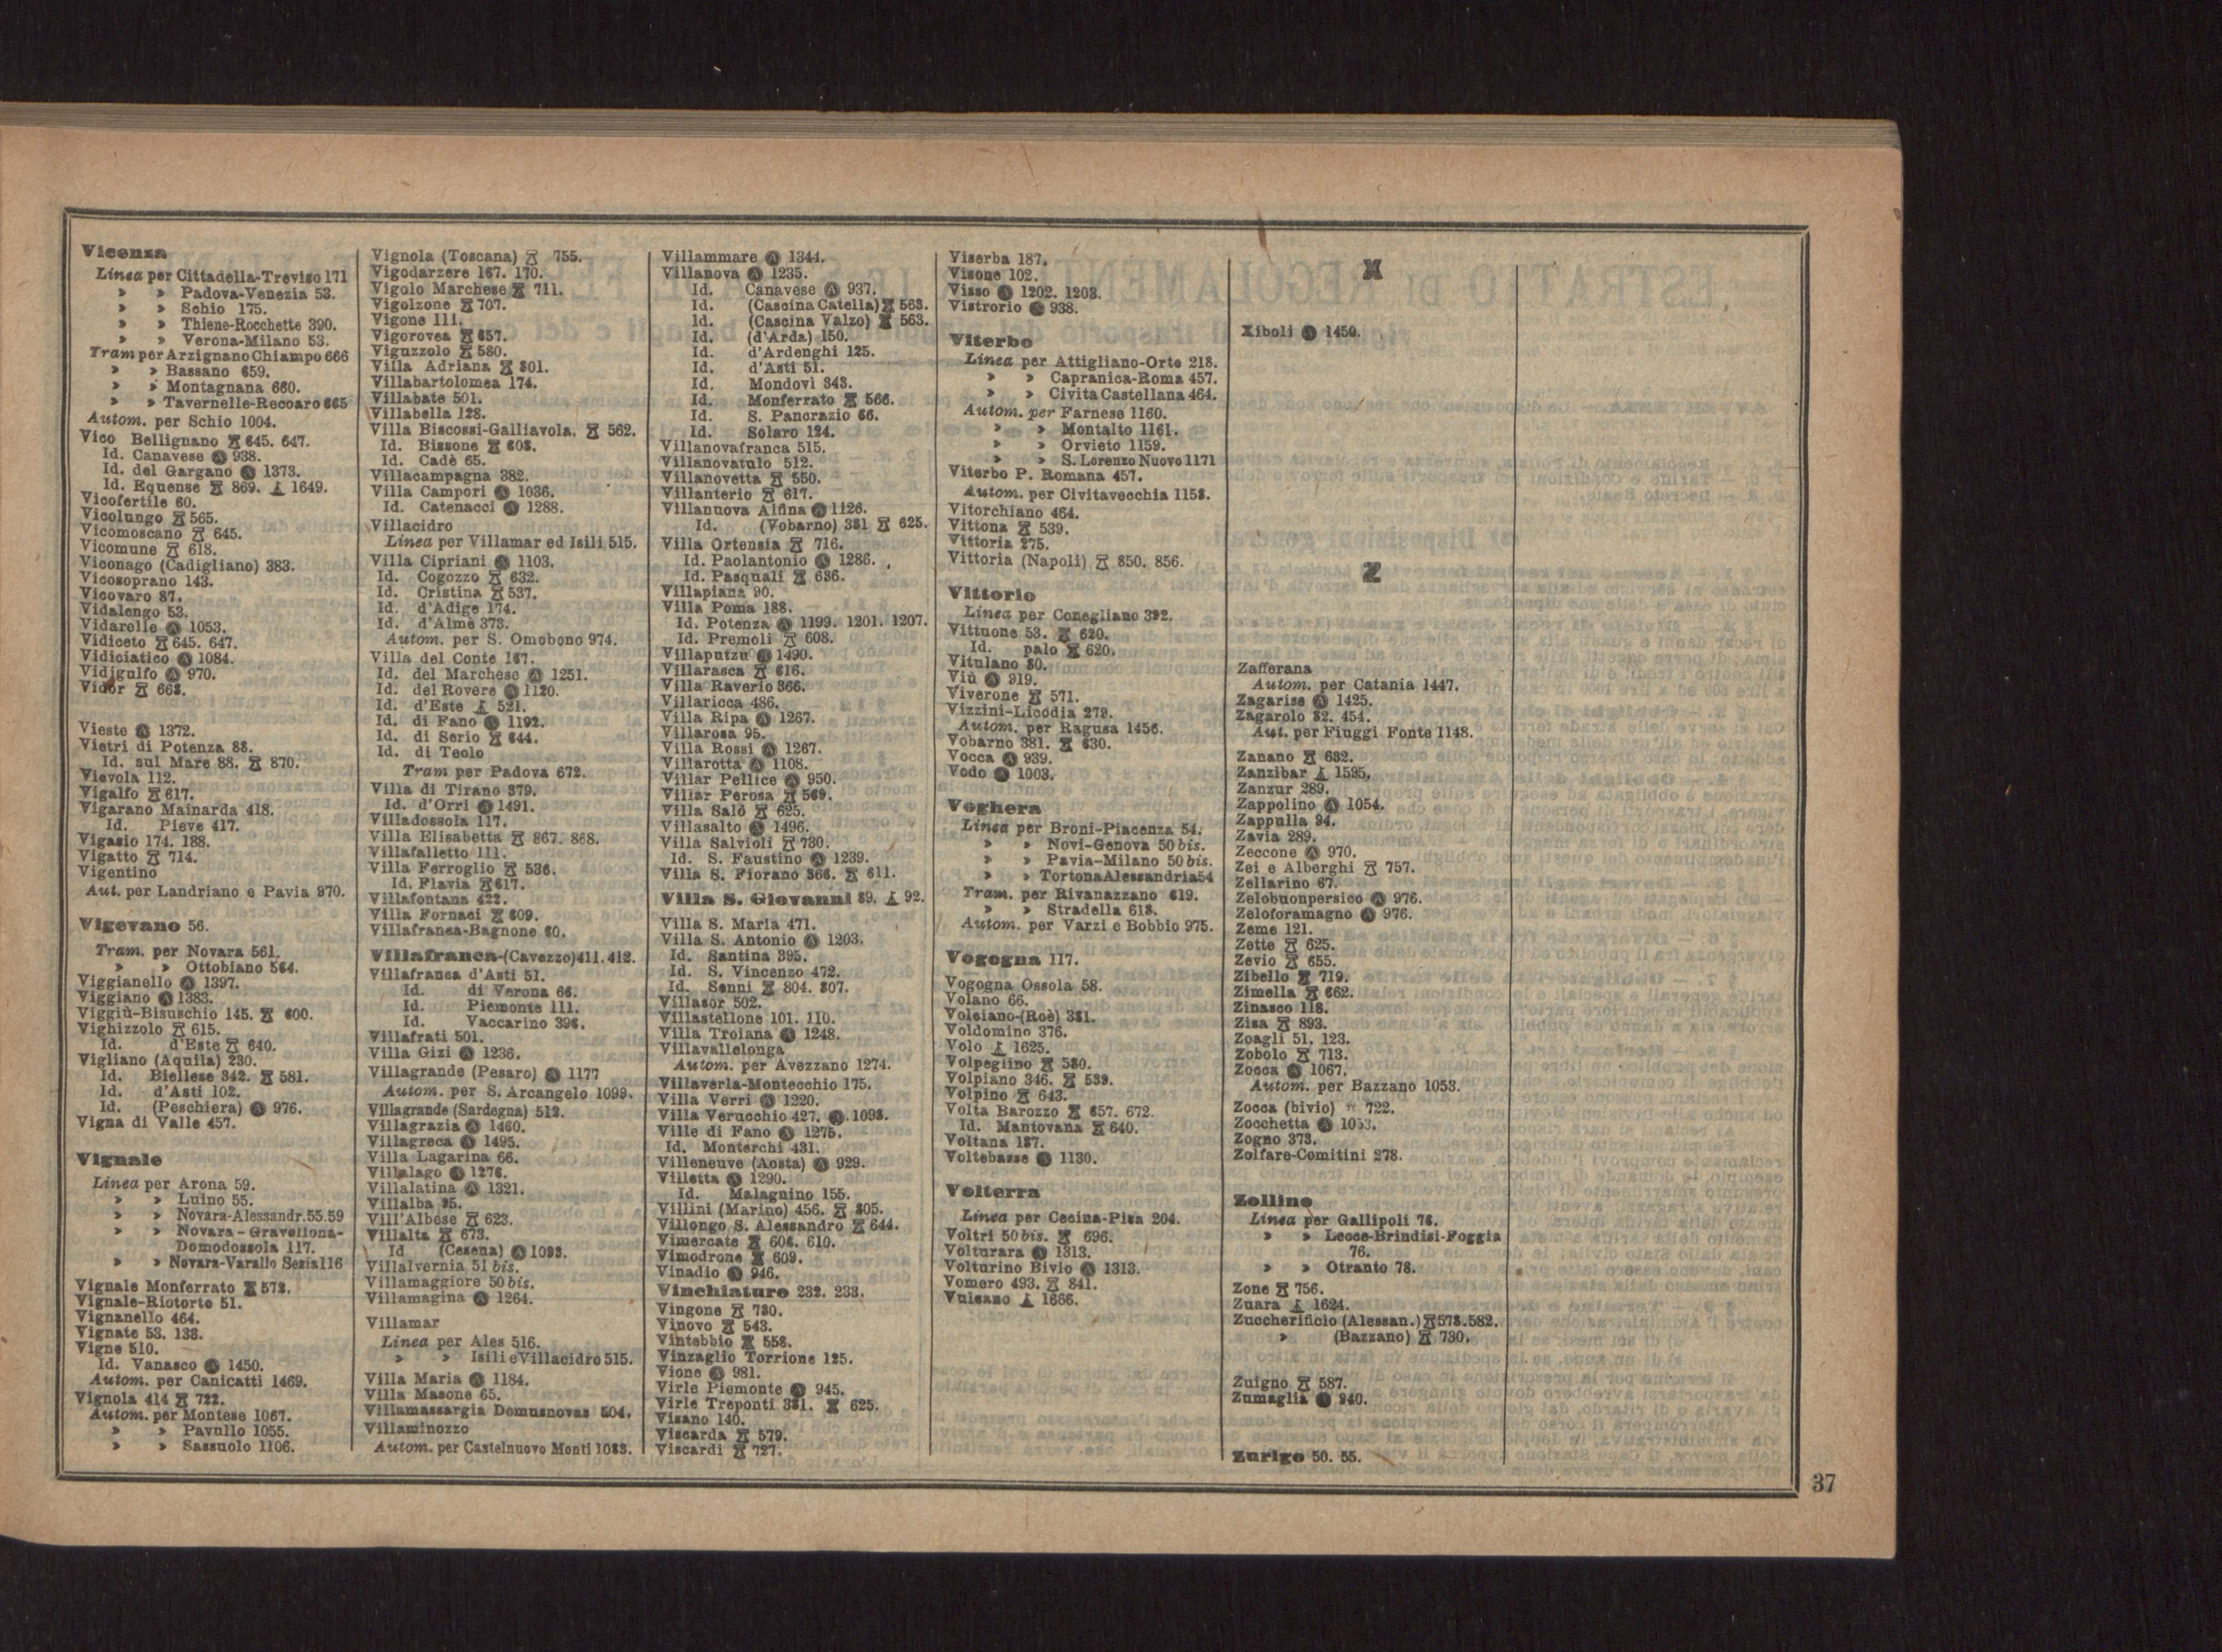 Vicenza
Linea per Cittadella-Treviso 171
» » Padova-Venezia 53.
» » Schio 175.
» » Thiene-Rocchette 390.
» » Verona-Milano 53.
Tram per Arzignano Chiampo 666
» » Bassano 659.
» » Montagnana 660.
» » Tavernelle-Recoaro 665
Autom. per Schio 1004.
Vico Bellignano 645. 647.
Id. Canavese Ⓐ 938.
Id. del Gargano Ⓐ 1373.
Id. Equense 869. 1649.
Vicofertile 60.
Vicolungo 565.
Vicomoscano 645.
Vicomune 618.
Viconago (Cadigliano) 383.
Vicosoprano 143.
Vicovaro 87.
Vidalengo 53.
Vidarelle Ⓐ 1053.
Vidiceto 645. 647.
Vidiciatico Ⓐ 1084.
Vidigulfo Ⓐ 970.
Vidor 668.
Vieste Ⓐ 1372.
Vietri di Potenza 88.
Id. sul Mare 88. 870.
Vievola 112.
Vigalfo 617.
Vigarano Mainarda 418.
Id. Pieve 417.
Vigasio 174. 188.
Vigatto 714.
Vigentino
Aut. per Landriano e Pavia 970.
Vigevano 56.
Tram. per Novara 561.
» » Ottobiano 564.
Viggianello Ⓐ 1397.
Viggiano Ⓐ 1383.
Viggiù-Bisuschio 145. 600.
Vighizzolo 615.
Id. d'Este 640.
Vigliano (Aquila) 230.
Id. Biellese 342. 581.
Id. d'Asti 102.
Id. (Peschiera) Ⓐ 976.
Vigna di Valle 457.
Vignale
Linea per Arona 59.
» » Luino 55.
» » Novara-Alessandr. 55.59
» » Novara-Gravellona-
Domodossola 117.
» » Novara-Varallo Sesia 116
Vignale Monferrato 572.
Vignale-Riotorto 51.
Vignanello 464.
Vignate 53. 138.
Vigne 510.
Id. Vanasco Ⓐ 1450.
Autom. per Canicatti 1469.
Vignola 414 722.
Autom. per Montese 1067.
» » Pavullo 1055.
» » Sassuolo 1106.
Vignola (Toscana) 755.
Vigodarzere 167. 170.
Vigolo Marchese 711.
Vigolzone 707.
Vigone 111.
Vigorovea 657.
Viguzzolo 580.
Villa Adriana 801.
Villabartolomea 174.
Villabate 501.
Villabella 128.
Villa Biscossi-Galliavola. 562.
Id. Bissone 608.
Id. Cadè 65.
Villacampagna 382.
Villa Campori Ⓐ 1036.
Id. Catenacci Ⓐ 1288.
Villacidro
Linea per Villamar ed Isili 515.
Villa Cipriani Ⓐ 1103.
Id. Cogozzo 632.
Id. Cristina 537.
Id. d'Adige 174.
Id. d'Almè 373.
Autom. per S. Omobono 974.
Villa del Conte 167.
Id. del Marchese Ⓐ 1251.
Id. del Rovere Ⓐ 1120.
Id. d'Este 521.
Id. di Fano Ⓐ 1192.
Id. di Serio 644.
Id. di Teolo
Tram per Padova 672.
Villa di Tirano 379.
Id. d'Orri Ⓐ 1491.
Villadossola 117.
Villa Elisabetta 867. 868.
Villafalletto 111.
Villa Ferroglio 536.
Id. Flavia 617.
Villafontana 422.
Villa Fornaci 609.
Villafranca-Bagnone 60.
Villafranca-(Cavezzo) 411. 412.
Villafranca d'Asti 51.
Id. di Verona 66.
Id. Piemonte 111.
Id. Vaccarino 396.
Villafrati 501.
Villa Gizi Ⓐ 1236.
Villagrande (Pesaro) Ⓐ 1177
Autom. per S. Arcangelo 1099.
Villagrande (Sardegna) 512.
Villagrazia Ⓐ 1460.
Villagreca Ⓐ 1495.
Villa Lagarina 66.
Villalago Ⓐ 1276.
Villalatina Ⓐ 1321.
Villalba 95.
Vill'Albese 623.
Villalta 673.
Id (Cesena) Ⓐ 1093.
Villalvernia 51 bis.
Villamaggiore 50 bis.
Villamagina Ⓐ 1264.
Villamar
Linea per Ales 516.
» » Isili e Villacidro 515.
Villa Maria Ⓐ 1184.
Villa Masone 65.
Villamassargia Domusnovas 504.
Villaminozzo
Autom. per Castelnuovo Monti 1083.
Villammare Ⓐ 1344.
Villanova Ⓐ 1235.
Id. Canavese Ⓐ 937.
Id. (Cascina Catella) 563.
Id. (Cascina Valzo) 563.
Id. (d'Arda) 150.
Id. d'Ardenghi 125.
Id. d'Asti 51.
Id. Mondovì 343.
Id. Monferrato 566.
Id. S. Pancrazio 66.
Id. Solaro 124.
Villanovafranca 515.
Villanovatulo 512.
Villanovetta 550.
Villanterio 617.
Villanuova Alfina Ⓐ 1126.
Id. (Vobarno) 381 625.
Villa Ortensia 716.
Id. Paolantonio Ⓐ 1286.
Id. Pasquali 636.
Villapiana 90.
Villa Poma 188.
Id. Potenza Ⓐ 1199. 1201. 1207.
Id. Premoli 608.
Villaputzu Ⓐ 1490.
Villarasca 616.
Villa Raverio 366.
Villaricca 486.
Villa Ripa Ⓐ 1267.
Villarosa 95.
Villa Rossi Ⓐ 1267.
Villarotta Ⓐ 1108.
Villar Pellice Ⓐ 950.
Villar Perosa 569.
Villa Salò 625.
Villasalto Ⓐ 1496.
Villa Salvioli 730.
Id. S. Faustino Ⓐ 1239.
Villa S. Fiorano 366. 611.
Villa S. Giovanni 89. 92.
Villa S. Maria 471.
Villa S. Antonio Ⓐ 1203.
Id. Santina 395.
Id. S. Vincenzo 472.
Id. Senni 804. 807.
Villasor 502.
Villastellone 101. 110.
Villa Troiana Ⓐ 1248.
Villavallelonga
Autom. per Avezzano 1274.
Villaverla-Montecchio 175.
Villa Verri Ⓐ 1220.
Villa Verucchio 427. Ⓐ. 1098.
Ville di Fano Ⓐ 1275.
Id. Monterchi 431.
Villeneuve (Aosta) Ⓐ 929.
Villetta Ⓐ 1290.
Id. Malagnino 155.
Villini (Marino) 456. 805.
Villongo S. Alessandro 644.
Vimercate 606. 610.
Vimodrone 609.
Vinadio Ⓐ 946.
Vinchiaturo 232. 233.
Vingone 780.
Vinovo 543.
Vintebbio 558.
Vinzaglio Torrione 125.
Vione Ⓐ 981.
Virle Piemonte Ⓐ 945.
Virle Treponti 381. 625.
Visano 140.
Viscarda 579.
Viscardi 727.
Viserba 187.
Visone 102.
Visso Ⓐ 1202. 1203.
Vistrorio Ⓐ 938.
Viterbo
Linea per Attigliano-Orte 218.
» » Capranica-Roma 457.
» » Civita Castellana 464.
Autom. per Farnese 1160.
» » Montalto 1161.
» » Orvieto 1159.
» » S. Lorenzo Nuovo 1171
Viterbo P. Romana 457.
Autom. per Civitavecchia 1158.
Vitorchiano 464.
Vittona 539.
Vittoria 275.
Vittoria (Napoli) 850. 856.
Vittorio
Linea per Conegliano 392.
Vittuone 53. 620.
Id. palo 620.
Vitulano 80.
Viù Ⓐ 919.
Viverone 571.
Vizzini-Licodia 279.
Autom. per Ragusa 1456.
Vobarno 381. 630.
Vocca Ⓐ 939.
Vodo Ⓐ 1003.
Voghera
Linea per Broni-Piacenza 54.
» » Novi-Genova 50 bis.
» » Pavia-Milano 50 bis.
» » Tortona Alessandria 54
Tram. per Rivanazzano 619.
» » Stradella 618.
Autom. per Varzi e Bobbio 975.
Vogogna 117.
Vogogna Ossola 58.
Volano 66.
Volciano-(Roè) 381.
Voldomino 376.
Volo 1625.
Volpeglino 580.
Volpiano 346. 539.
Volpino 643.
Volta Barozzo 657. 672.
Id. Mantovana 640.
Voltana 187.
Voltebasse Ⓐ 1130.
Volterra
Linea per Cecina-Pisa 204.
Voltri 50 bis. 696.
Volturara Ⓐ 1313.
Volturino Bivio Ⓐ 1313.
Vomero 493. 841.
Vulcano 1666.
X
Xiboli Ⓐ 1450.
Z
Zafferana
Autom. per Catania 1447.
Zagarise Ⓐ 1425.
Zagarolo 82. 454.
Aut. per Fiuggi Fonte 1148.
Zanano 632.
Zanzibar 1595.
Zanzur 289.
Zappolino Ⓐ 1054.
Zappulla 94.
Zavia 289.
Zeccone Ⓐ 970.
Zei e Alberghi 757.
Zellarino 67.
Zelobuonpersico Ⓐ 976.
Zeloforamagno Ⓐ 976.
Zeme 121.
Zette 625.
Zevio 655.
Zibello 719.
Zimella 662.
Zinasco 118.
Zisa 893.
Zoagli 51. 123.
Zobolo 713.
Zocca Ⓐ 1067.
Autom. per Bazzano 1053.
Zocca (bivio) 722.
Zocchetta Ⓐ 1053.
Zogno 373.
Zolfare-Comitini 278.
Zollino
Linea per Gallipoli 76.
» » Lecce-Brindisi-Foggia
76.
» » Otranto 78.
Zone 756.
Zuara 1624.
Zuccherificio (Alessan.) 578. 582.
» (Bazzano) 730.
Zuigno 587.
Zumaglia Ⓐ 940.
Zurigo 50. 55.
37